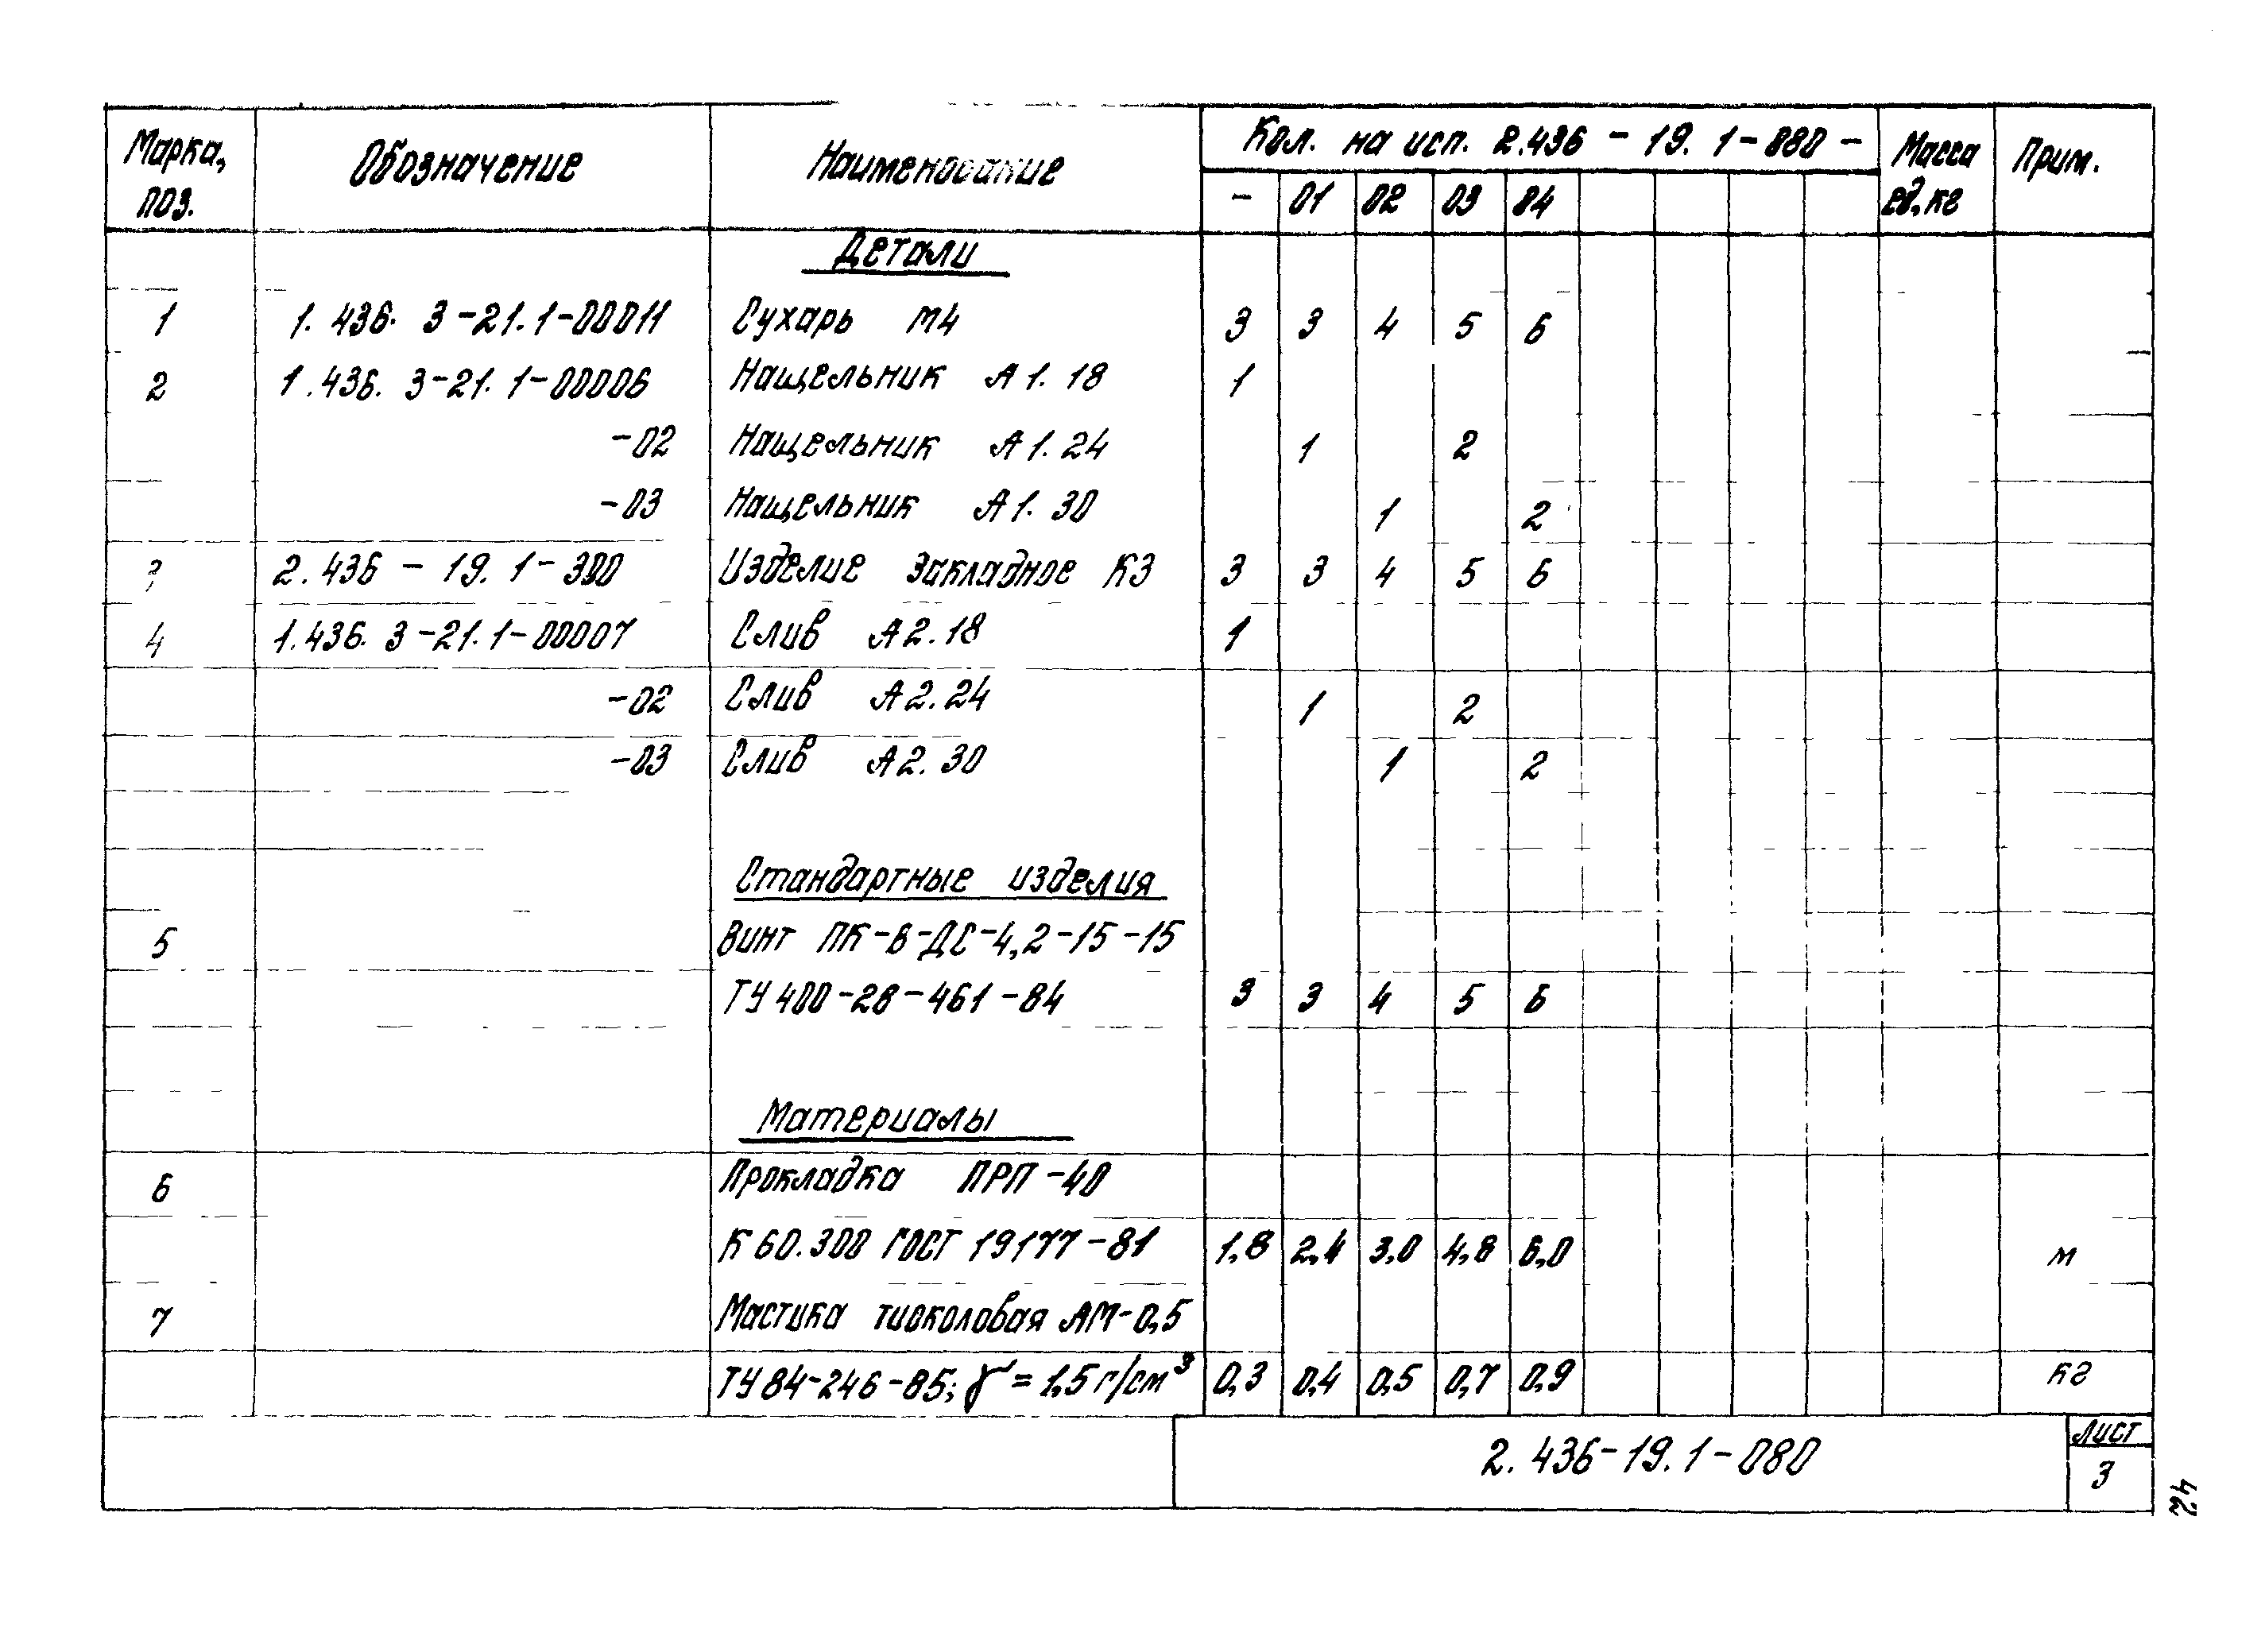 Марка, Обозначение Наименование Кол. на исп. 2.436 - 19. 1-080 - Масса Прим.
поз. - 01 02 03 04 ед, кг
Детали
1 1. 436. 3-21. 1-00011 Сухарь М4 3 3 4 5 6
2 1. 436. 3-21. 1-00006 Нащельник А1. 18 1
-02 Нащельник А1. 24 1 2
-03 Нащельник А1. 30 1 2
3 2. 436 - 19. 1-300 Изделие закладное К3 3 3 4 5 6
4 1. 436. 3-21. 1-00007 Слив А2. 18 1
-02 Слив А2. 24 1 2
-03 Слив А2. 30 1 2
Стандартные изделия
5 Винт ПК-В-ДС-4,2-15-15
ТУ 400-28-461-84 3 3 4 5 6
Материалы
6 Прокладка ПРП-40
К 60. 300 ГОСТ 19177-81 1,8 2,4 3,0 4,8 6,0 м
7 Мастика тиоколовая АМ-0,5
ТУ 84-246-85; γ = 1,5 г/см³ 0,3 0,4 0,5 0,7 0,9 кг
2. 436-19. 1-080 Лист
3
42